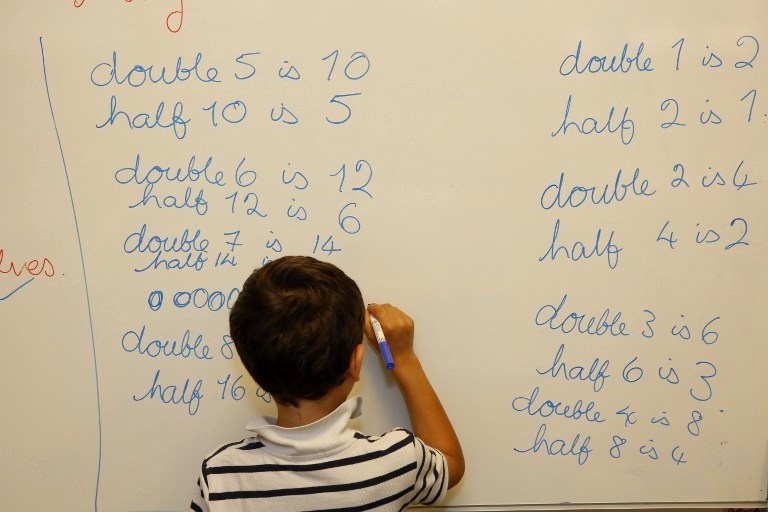 lves.
double 5 is 10
half 10 is 5
double 6 is 12
half 12 is 6
double 7 is 14
half 14 is
double 8
half 16 is
double 1 is 2
half 2 is 1.
double 2 is 4
half 4 is 2
double 3 is 6
half 6 is 3
double 4 is 8
half 8 is 4